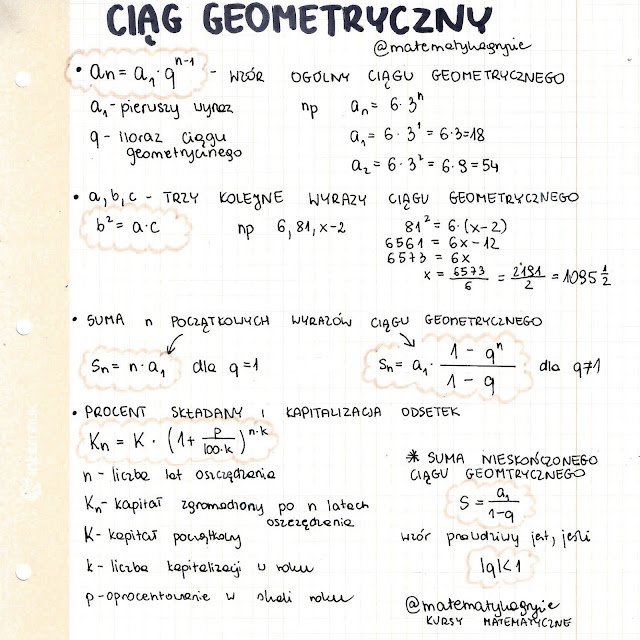 CIĄG GEOMETRYCZNY
@matematykagryzie
• an = a₁·q^(n-1) - WZÓR OGÓLNY CIĄGU GEOMETRYCZNEGO
a₁ - pierwszy wyraz np an = 6·3^n
q - iloraz ciągu geometrycznego a₁ = 6·3¹ = 6·3=18
a₂ = 6·3² = 6·9=54
• a, b, c - TRZY KOLEJNE WYRAZY CIĄGU GEOMETRYCZNEGO
b² = a·c np 6, 81, x-2 81² = 6·(x-2)
6561 = 6x-12
6573 = 6x
x = 6573/6 = 2191/2 = 1095 1/2
• SUMA n POCZĄTKOWYCH WYRAZÓW CIĄGU GEOMETRYCZNEGO
Sn = n·a₁ dla q=1 Sn = a₁ · (1-q^n)/(1-q) dla q≠1
• PROCENT SKŁADANY I KAPITALIZACJA ODSETEK
Kn = K·(1+ p/(100·k))^(n·k)
n - liczba lat oszczędzania
Kn - kapitał zgromadzony po n latach
oszczędzania
K - kapitał początkowy
k - liczba kapitalizacji w roku
p - oprocentowanie w skali roku
* SUMA NIESKOŃCZONEGO
CIĄGU GEOMTRYCZNEGO
S = a₁/(1-q)
wzór prawdziwy jest, jeśli
|q|<1
@matematykagryzie
KURSY MATEMATYCZNE